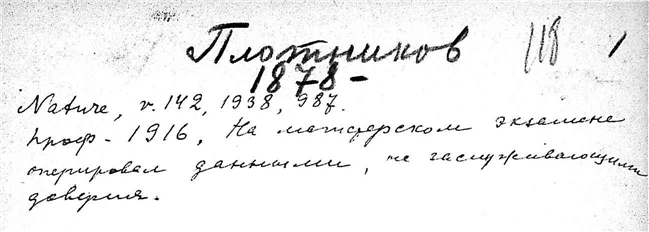 Плотников 118 1
1878-
Nature, v. 142, 1938, 987.
проф. - 1916. На магистерском экзамене
оперировал данными, не заслуживающими
доверия.